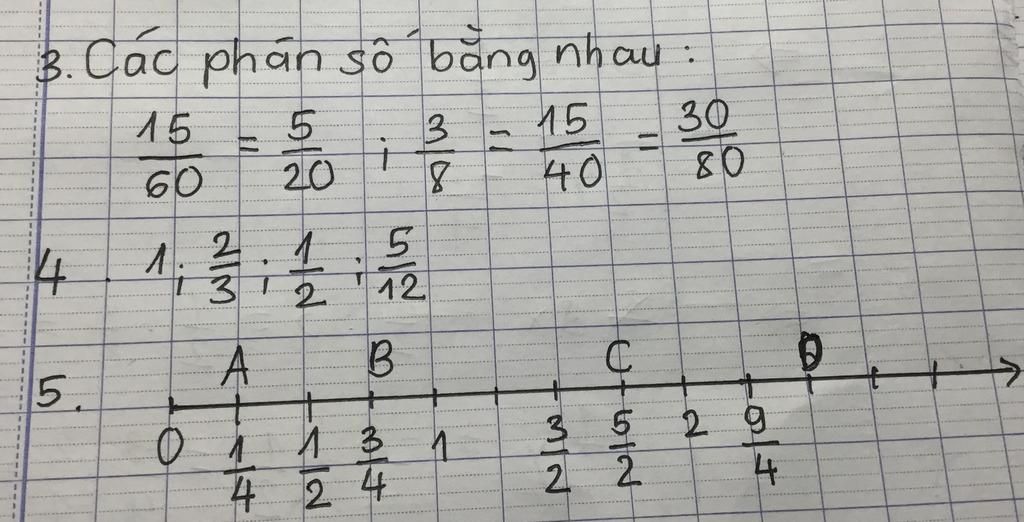 3. Các phân số bằng nhau :
15/60 = 5/20 ; 3/8 = 15/40 = 30/80
4. 1 ; 2/3 ; 1/2 ; 5/12
A B C D
5.
0 1/4 1/2 3/4 1 3/2 5/2 2 9/4